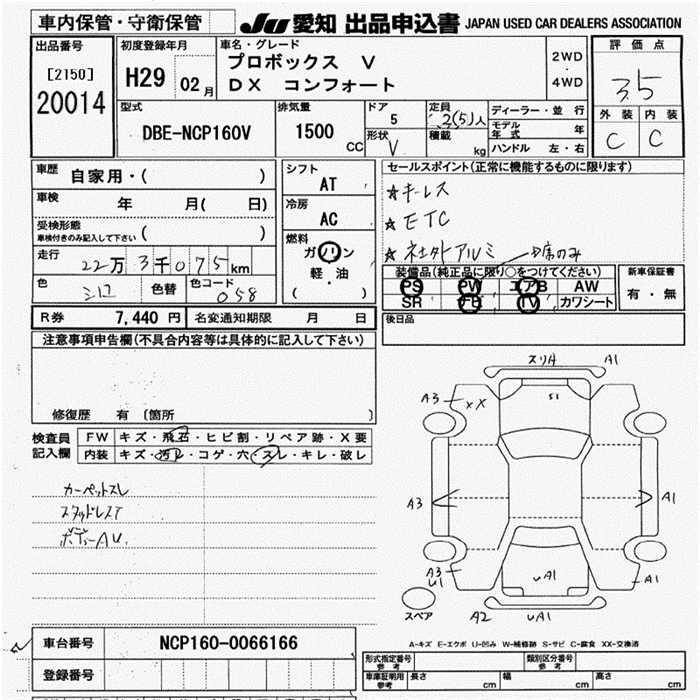 車内保管・守衛保管
JU 愛知 出品申込書 JAPAN USED CAR DEALERS ASSOCIATION
出品番号
[2150]
20014
初度登録年月
H29 02月
車名・グレード
プロボックス V
DX コンフォート
2WD
・
4WD
評価点
3.5
外装 内装
C C
型式
DBE-NCP160V
排気量
1500 CC
ドア
5
形状
V
定員
2(5)人
積載
kg
ディーラー・並行
モデル年式 年
ハンドル 左・右
車歴 自家用・( )
車検 年 月( 日)
受検形態
車検付きのみ記入して下さい ( )
走行 22万3千075km
色 シロ 色替 色コード 058
シフト
AT
冷房
AC
燃料
ガソリン
軽・油
( )
セールスポイント(正常に機能するものに限ります)
☆キーレス
☆ETC
☆社外アルミ
装備品(純正品に限り○をつけてください)
PS PW エアB AW
SR FB TV カワシート
新車保証書
有・無
R券 7,440円 名変通知期限 月 日
後日品
注意事項申告欄(不具合内容等は具体的に記入して下さい)
修復歴 有 (箇所 )
検査員
記入欄
FW キズ・飛石・ヒビ割・リペア跡・X要
内装 キズ・汚レ・コゲ・穴・スレ・キレ・破レ
カーペットスレ
スタッドレスT
ボデーAU
スリキ A1
A3 XX S1
A3 A1
A3
U1 UA1 A1
スペア A2 UA1
A-キズ E-エクボ U-凹み W-補修跡 S-サビ C-腐食 XX-交換済
車台番号 NCP160-0066166
登録番号
形式指定番号 参考 類別区分番号 参考
車庫証明用 参考 長さ cm 幅 cm 高さ cm